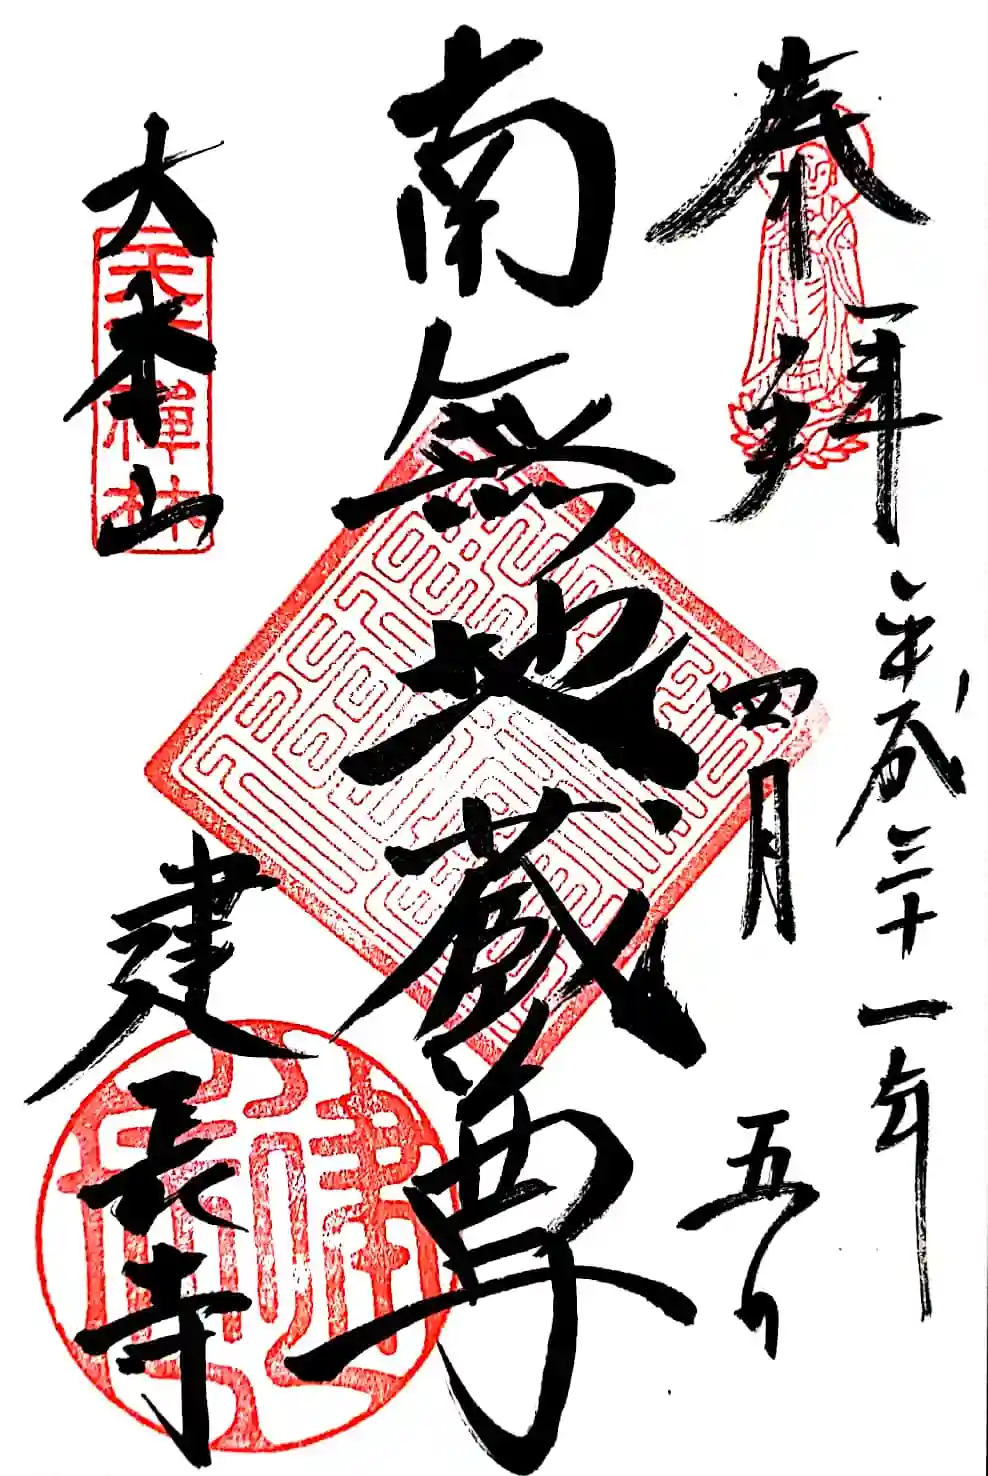 奉拝 平成三十一年
四月 五日
南無地蔵尊
大本山 建長寺
天下禅林